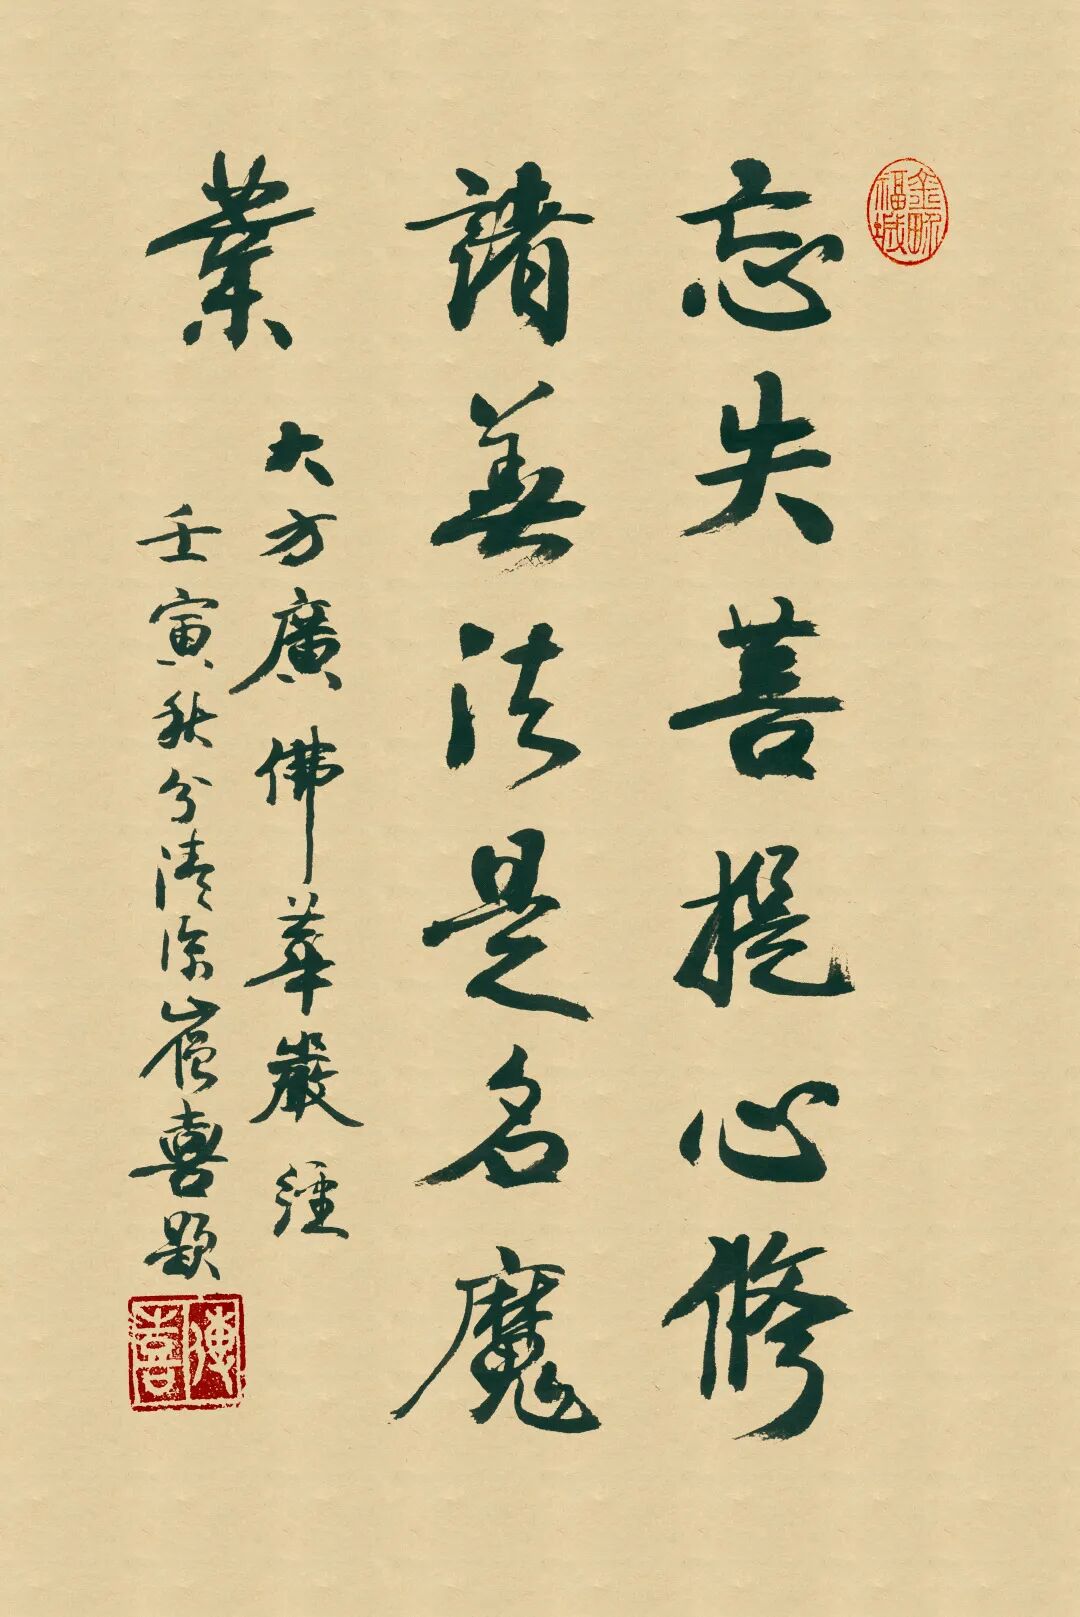 忘失菩提心修
諸善法是名魔
業
大方廣佛華嚴經
壬寅秋分清涼山僧喜題
傳喜
福城